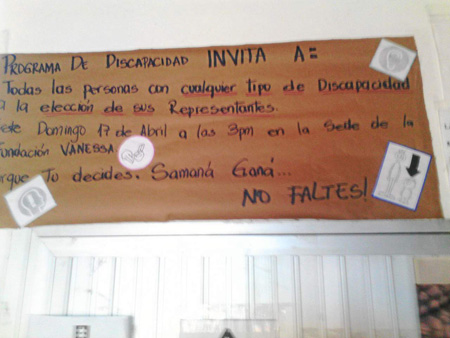 PROGRAMA DE DISCAPACIDAD INVITA A:
Todas las personas con cualquier tipo de Discapacidad
a la elección de sus Representantes.
este Domingo 17 de Abril a las 3pm en la Sede de la
Fundación VANESSA
rque To decides. Samaná Ganá...
NO FALTES!